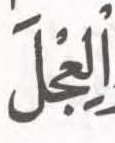 الْعِجْلَ